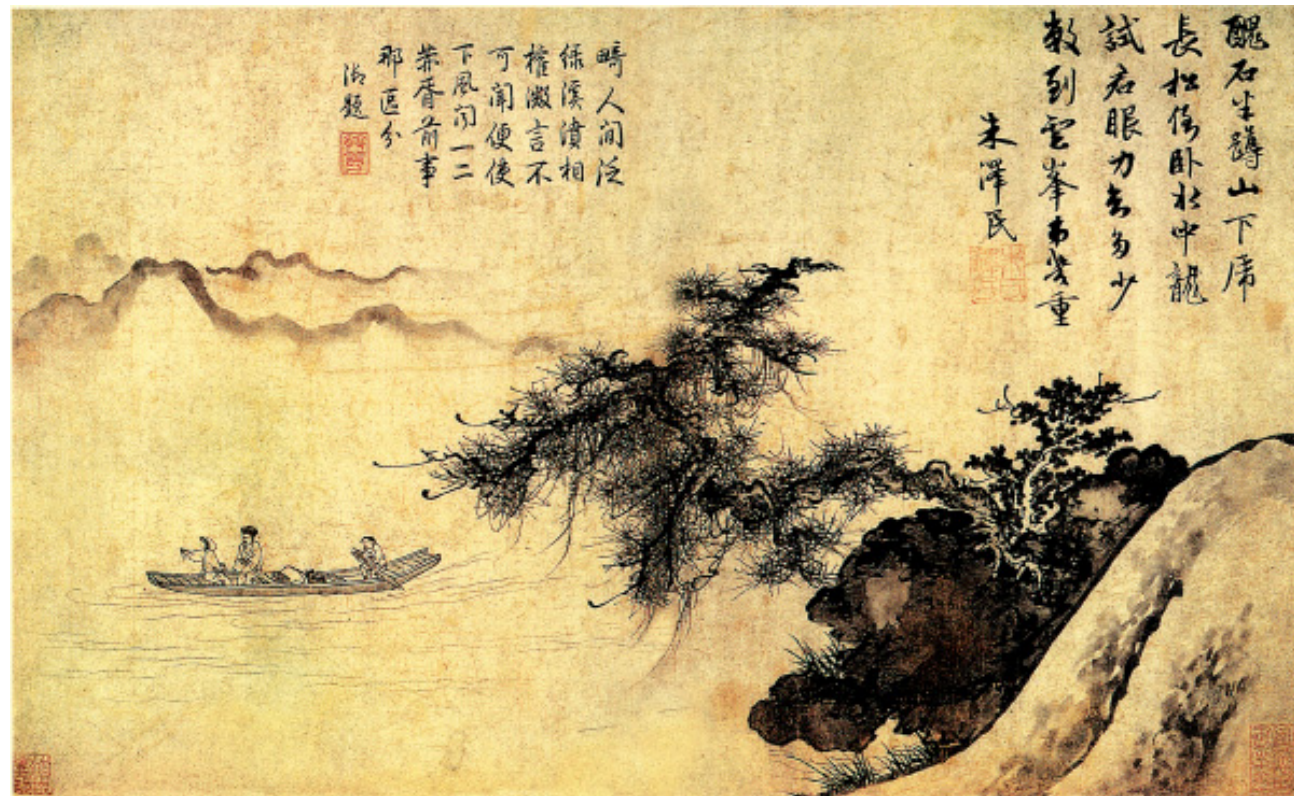 醜石半蹲山下虎
長松倒臥水中龍
試君眼力知多少
數到雲峯第幾重
朱澤民
疇人閒泛
綠溪濆相
權微言不
可聞便使
下風聞一二
榮胥前事
那區分
御題